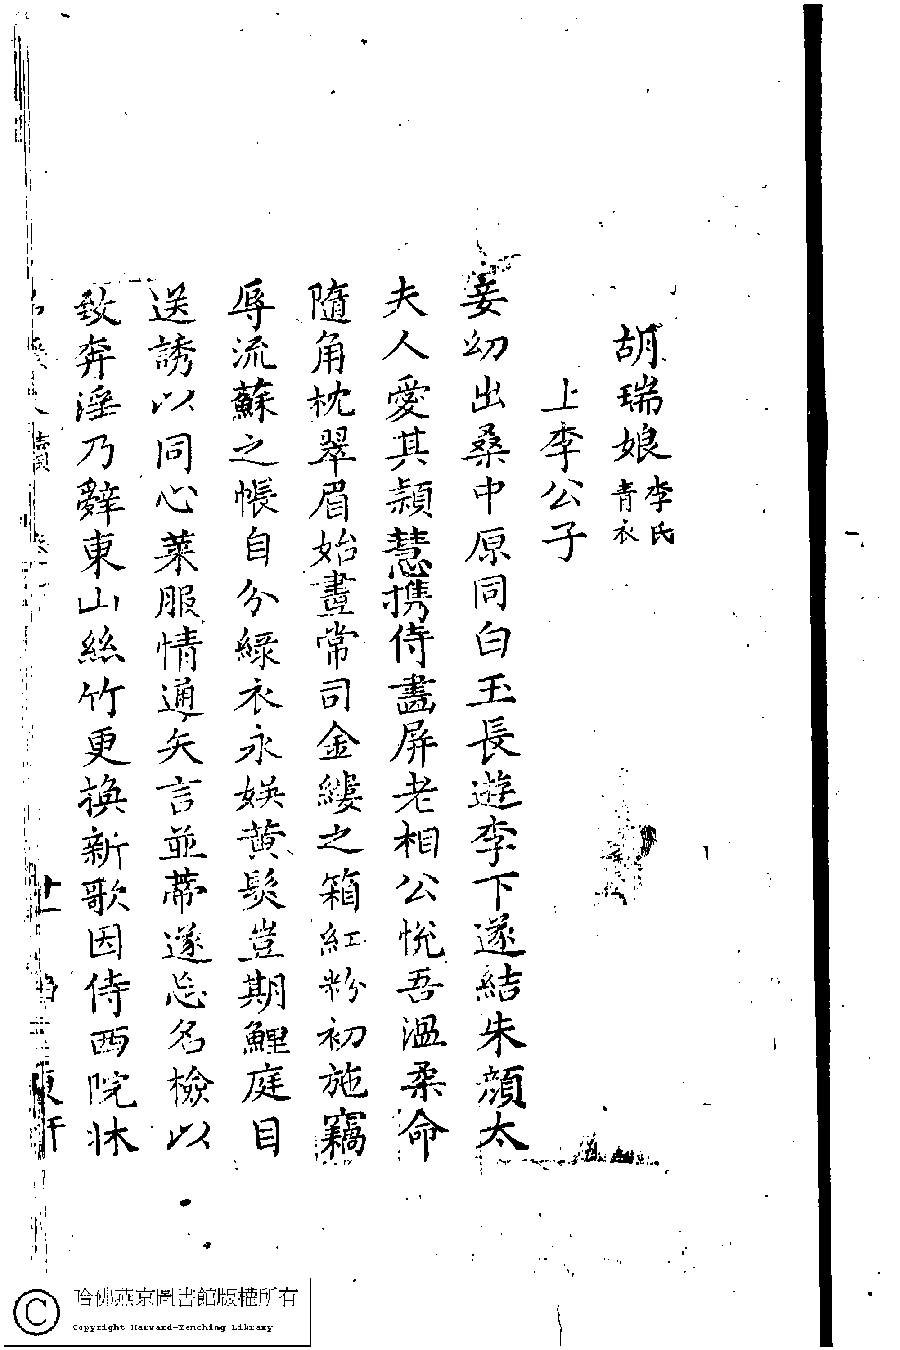 胡瑞娘 李氏青衣
上李公子
妾幼出桑中原同白玉長遊李下遂結朱顏太
夫人愛其穎慧携侍畵屏老相公悅吾溫柔命
隨角枕翠眉始畫常司金縷之箱紅粉初施竊
辱流蘇之帳自分綠衣永娱黄髮豈期鯉庭目
送誘以同心萊服情通矢言並蒂遂忘名檢以
致奔淫乃辭東山絲竹更換新歌因侍西院牀
牘
十一
東軒
哈佛燕京圖書館版權所有
Copyright Harvard-Yenching Library